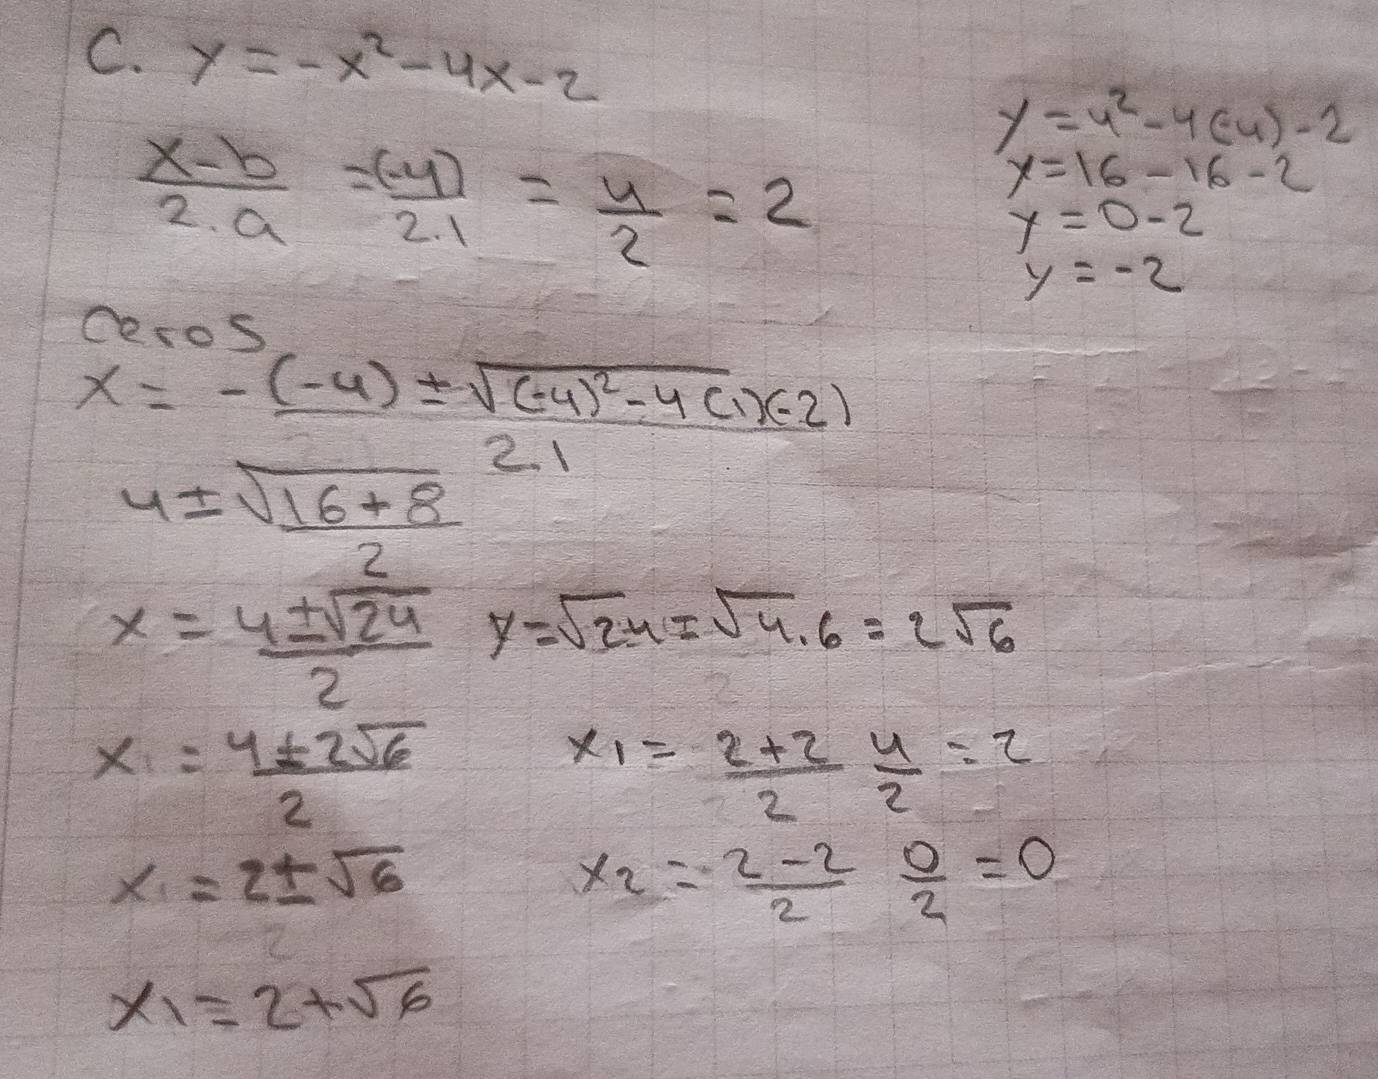 C. y = -x² - 4x - 2
x-b/2.a =(-4)/2.1 = 4/2 = 2
y = 4² - 4(-4) - 2
y = 16 - 16 - 2
y = 0 - 2
y = -2
Ceros
x = -(-4) ± √(-4)² - 4(1)(-2) / 2.1
4 ± √16 + 8 / 2
x = 4 ± √24 / 2 y = √24 = √4.6 = 2√6
x₁ = 4 ± 2√6 / 2 x₁ = 2+2/2 4/2 = 2
x₁ = 2 ± √6 x₂ = 2-2/2 0/2 = 0
x₁ = 2 + √6